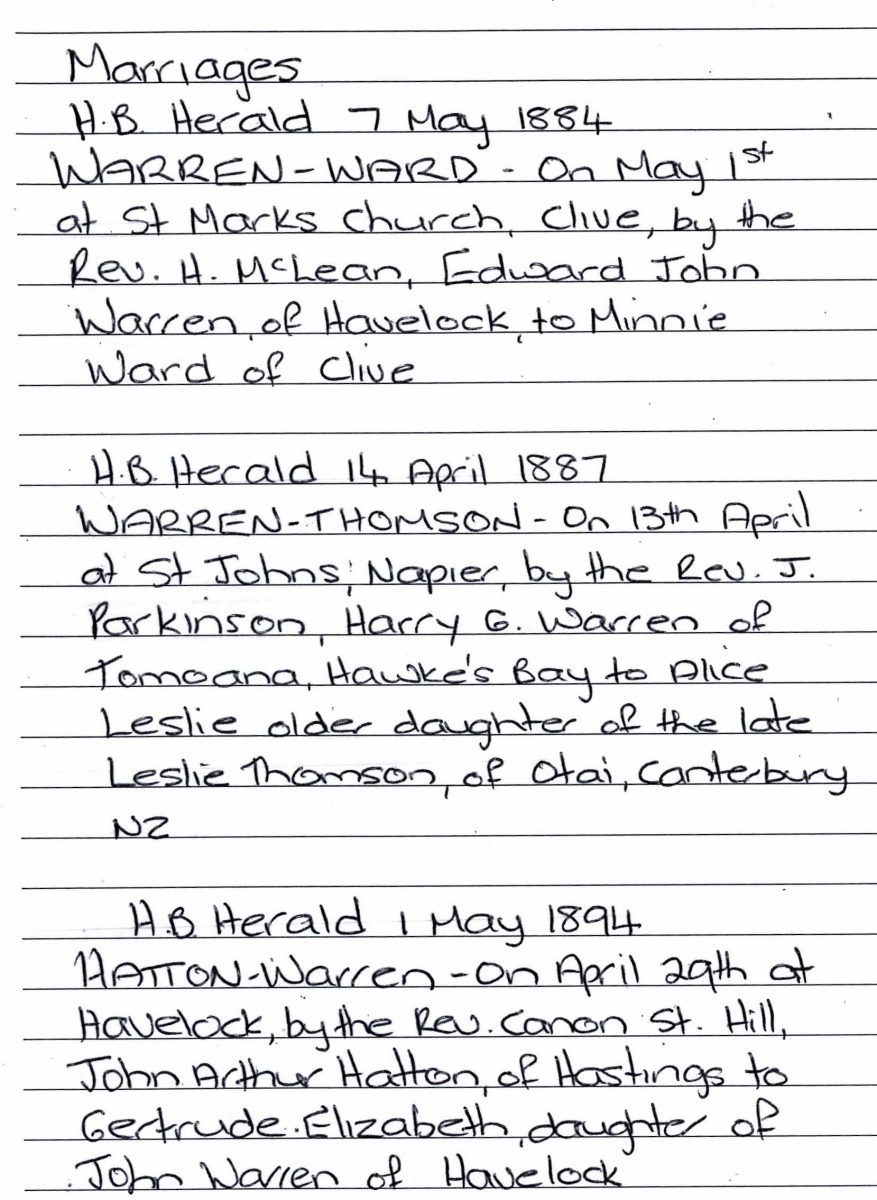 Marriages
H.B. Herald 7 May 1884
WARREN-WARD - On May 1st
at St Marks Church, Clive, by the
Rev. H. McLean, Edward John
Warren, of Havelock, to Minnie
Ward of Clive
H.B. Herald 14 April 1887
WARREN-THOMSON - On 13th April
at St Johns, Napier, by the Rev. J.
Parkinson, Harry G. Warren of
Tomoana, Hawke's Bay to Alice
Leslie older daughter of the late
Leslie Thomson, of Otai, Canterbury
NZ
H.B Herald 1 May 1894
HATTON-Warren - On April 29th at
Havelock, by the Rev. Canon St. Hill,
John Arthur Hatton, of Hastings to
Gertrude.Elizabeth, daughter of
John Warren of Havelock